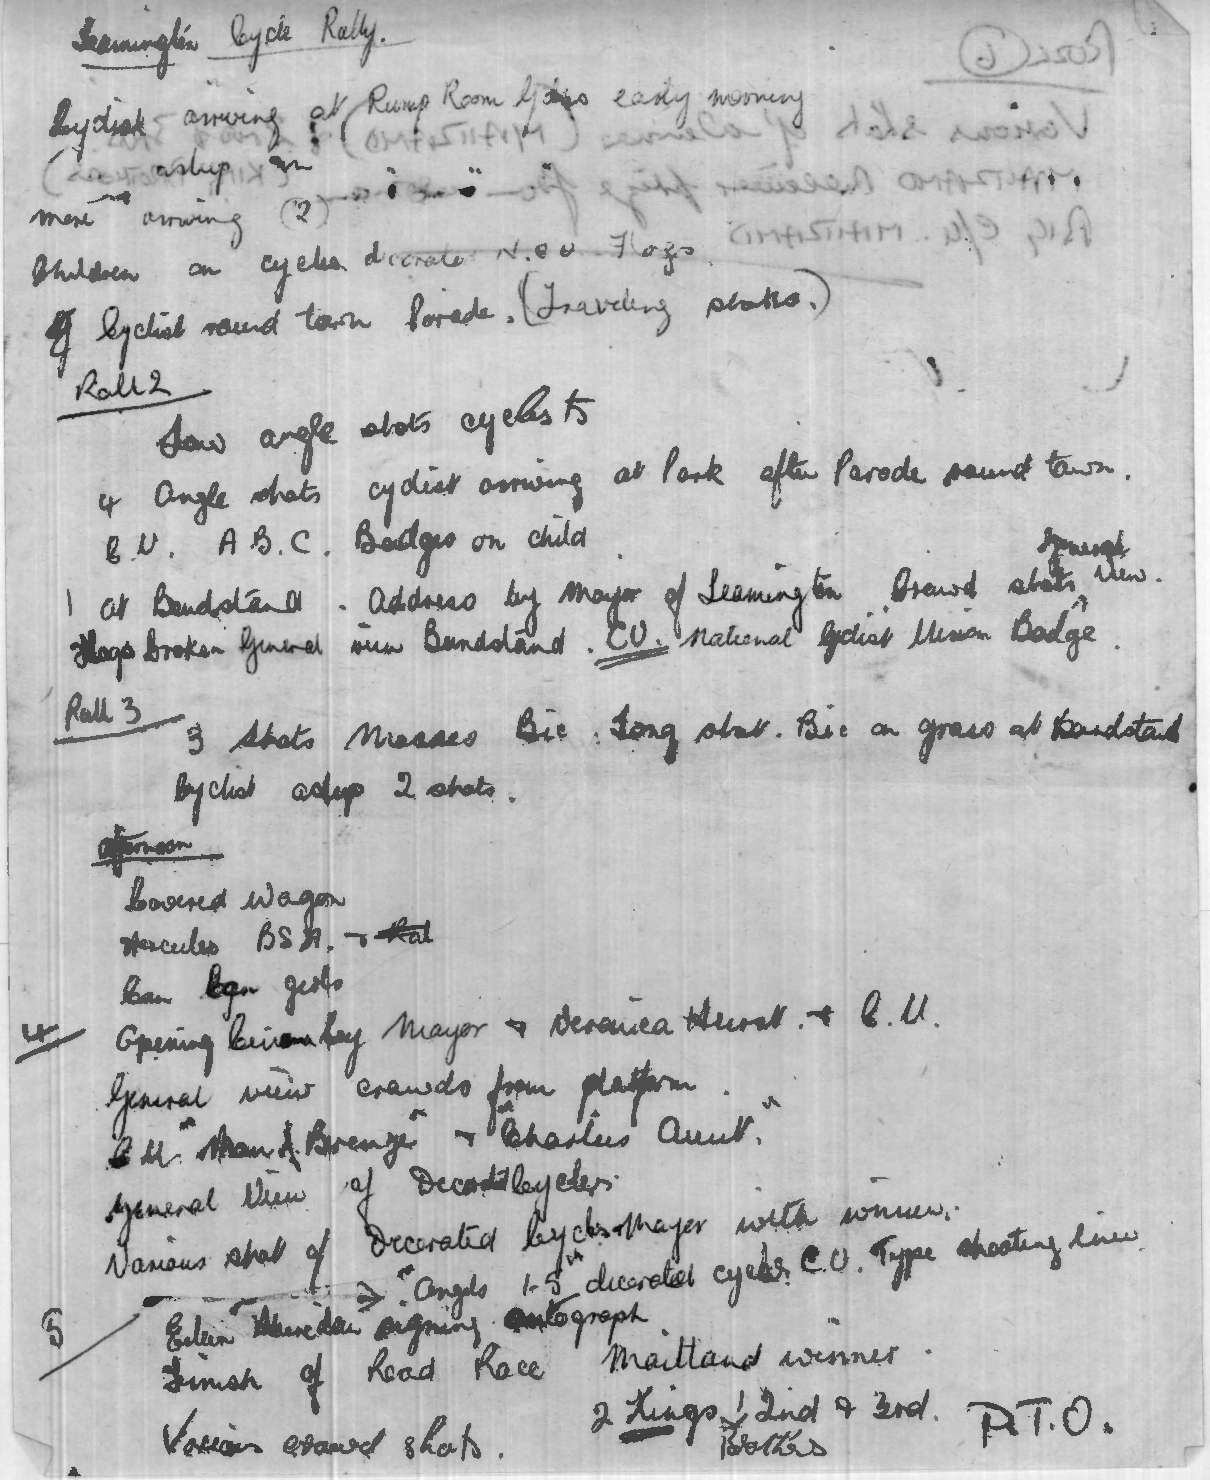 Leamington Cycle Rally.
Cyclist arriving at Pump Room Gdns early morning
( asleep on
more arriving (2) " - "
Children on cycles decorate N.C.U Flags.
Cyclist round town Parade. (Traveling shots.)
Roll 2
Low angle shots cyclists
4 Angle shots cyclist arriving at Park after Parade round town.
C.U. A.B.C. Badges on child
General
1 at Bandstand. Address by Mayor of Leamington Crowd shots View.
Flags broken General view Bandstand. C.U. National Cyclist Union Badge.
Roll 3
3 shots Masses Bic. Long shot. Bic on grass at bandstand
Cyclist asleep 2 shots.
Afternoon
Covered Wagon
Hercules BSA. + Ral
Can Can girls
4 Opening by Mayor + Veronica Hurst. + C.U.
General view crowds from platform.
C.U. "Man Bronze" + "Charlies Aunt."
General View of Decorat Cycles.
Various shot of Decorated Cycles + Mayor with winner.
→ "Angels 1-5" decorated cycles C.U. Type shooting line
5 Eileen Sheridan signing autograph
Finish of Road Race Maitland winner.
2 Kings 2nd & 3rd.
Brothers
Various crowd shots.
P.T.O.
Roll 6
Various shots of winner (MAITLAND)
MAITLAND Receives prize from
Big C/U. MAITLAND